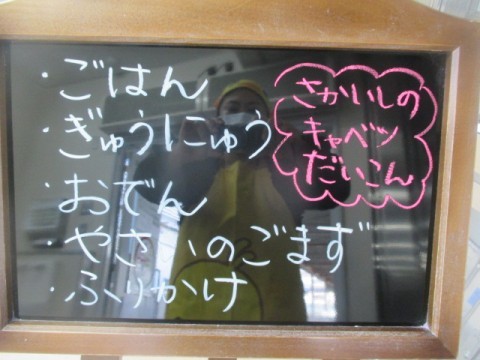 ・ごはん
・ぎゅうにゅう
・おでん
・やさいのごまず
・ふりかけ
さかいしの
キャベツ
だいこん